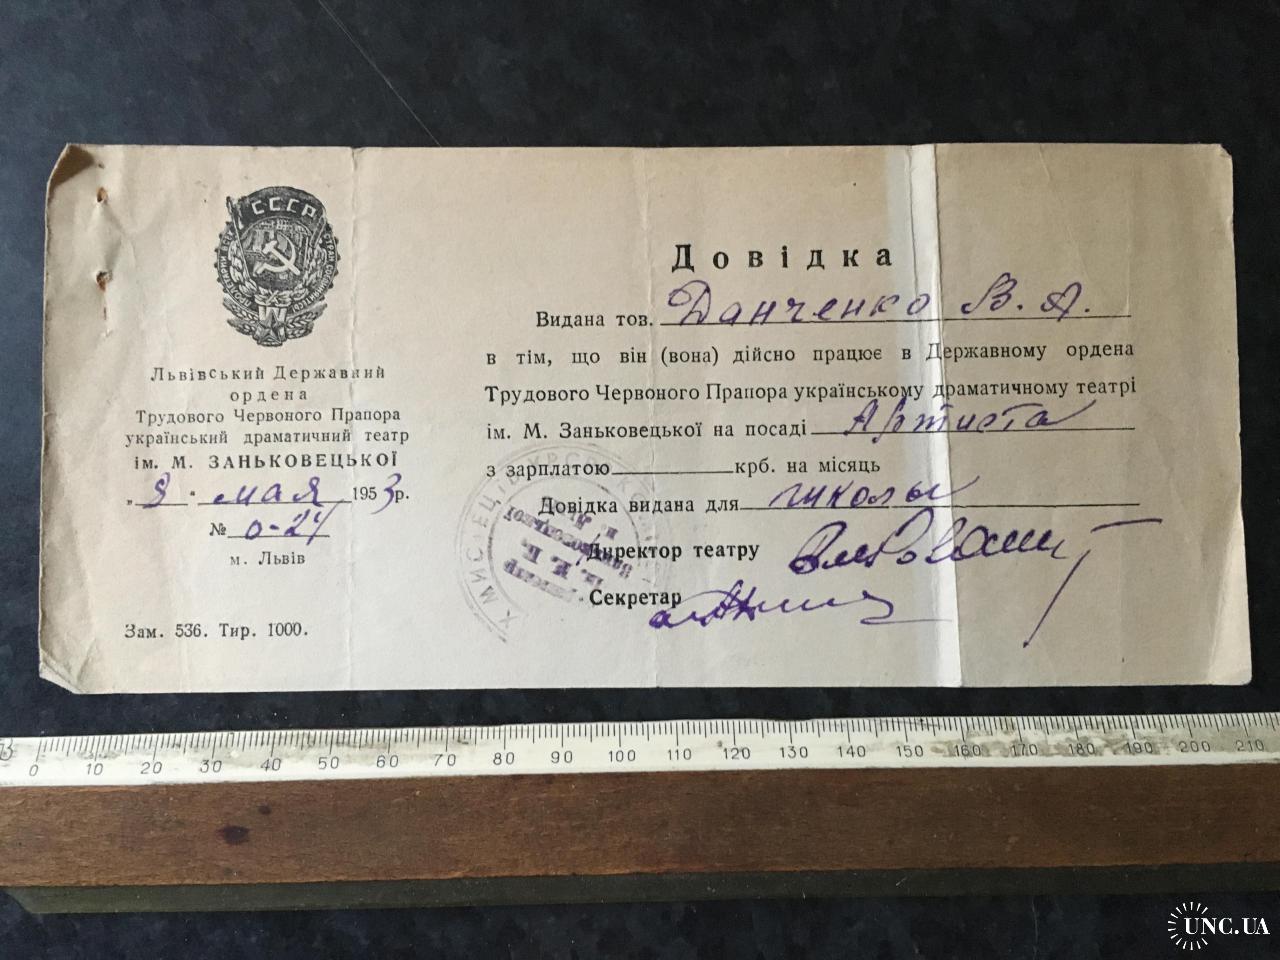 СССР
Львівський Державний
ордена
Трудового Червоного Прапора
український драматичний театр
ім. М. ЗАНЬКОВЕЦЬКОЇ
„ 9 " мая 1953 р.
№ 0-24
м. Львів
Зам. 536. Тир. 1000.
Довідка
Видана тов. Данченко В. А.
в тім, що він (вона) дійсно працює в Державному ордена
Трудового Червоного Прапора українському драматичному театрі
ім. М. Заньковецької на посаді Артиста
з зарплатою крб. на місяць
Довідка видана для школы
Директор театру
Секретар
0 10 20 30 40 50 60 70 80 90 100 110 120 130 140 150 160 170 180 190 200 210
UNC.UA